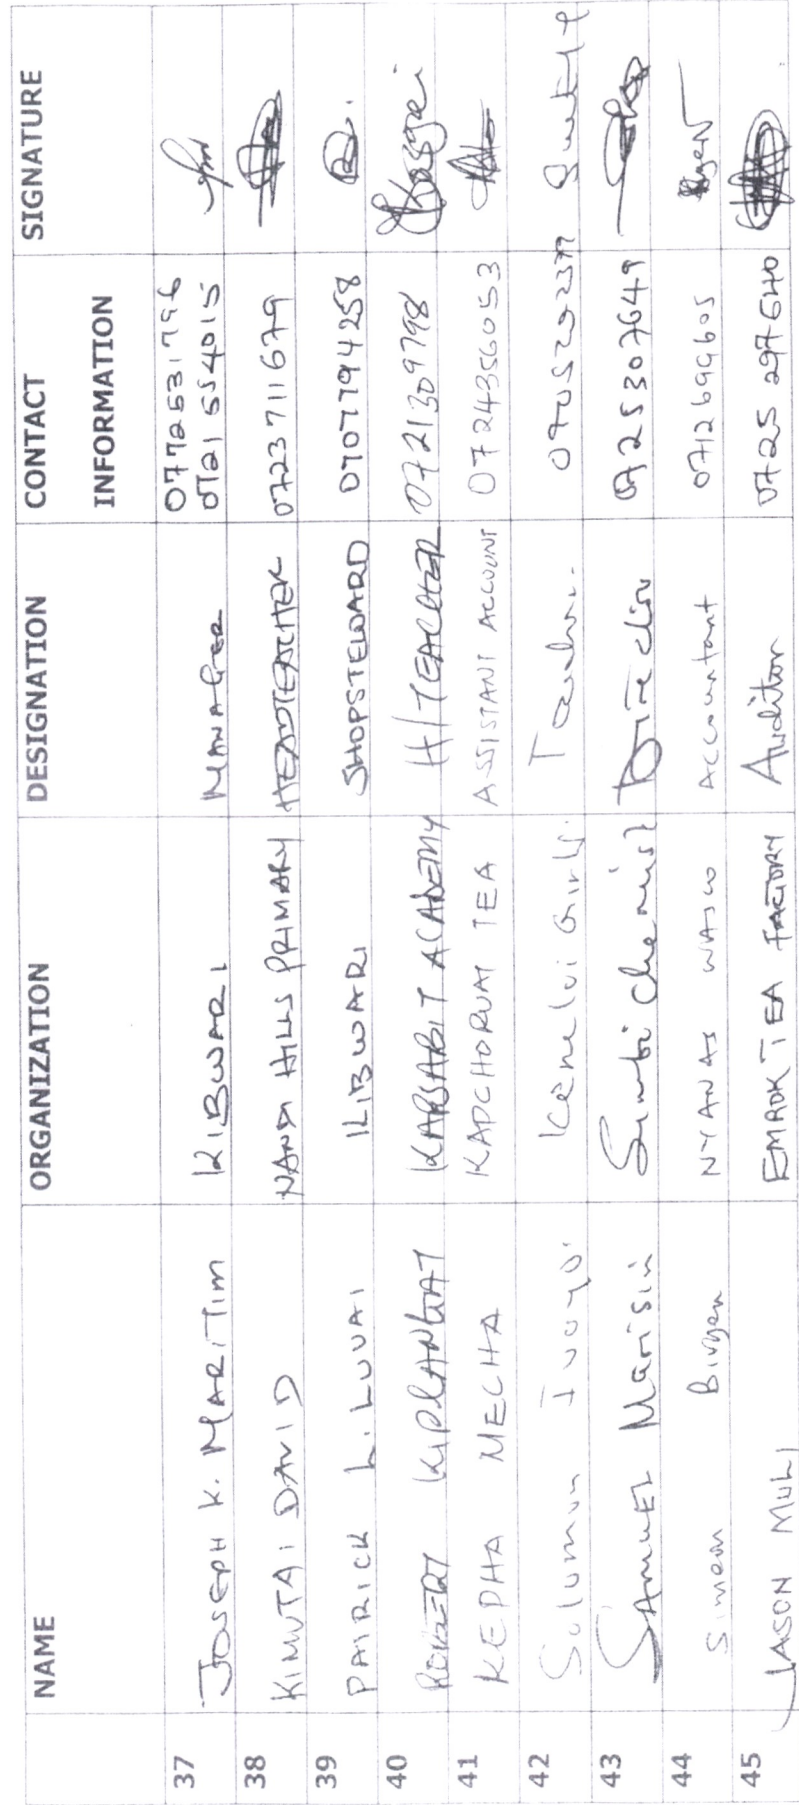 NAME ORGANIZATION DESIGNATION CONTACT INFORMATION SIGNATURE
37 JOSEPH K. MARITIM KIBWARI MANAGER 0772531796 0721554015
38 KIMUTAI DAVID NANDI HILLS PRIMARY HEADTEACHER 0723711679
39 PATRICK L. LUVAI KIBWARI SHOPSTEWARD 0707794258
40 ROBERT KIPLANGAT KAPSABIT ACADEMY H/TEACHER 0721309798
41 KEPHA MECHA KAPCHORUAI TEA ASSISTANT ACCOUNT 0724356053
42 Solomon Ivoyo. Kemeloi Girls. Teacher.
43 SAMUEL Marisin Simbi Chemist Director 0725307649
44 Simeon Birgen NYANAS WASCO Accountant 0712699605
45 JASON MULI EMROK TEA FACTORY Auditor 0725 297640